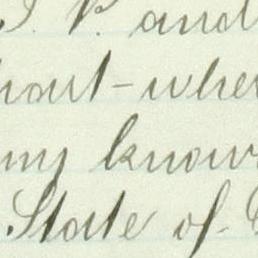 J. P. and
hout-when
my know
State of